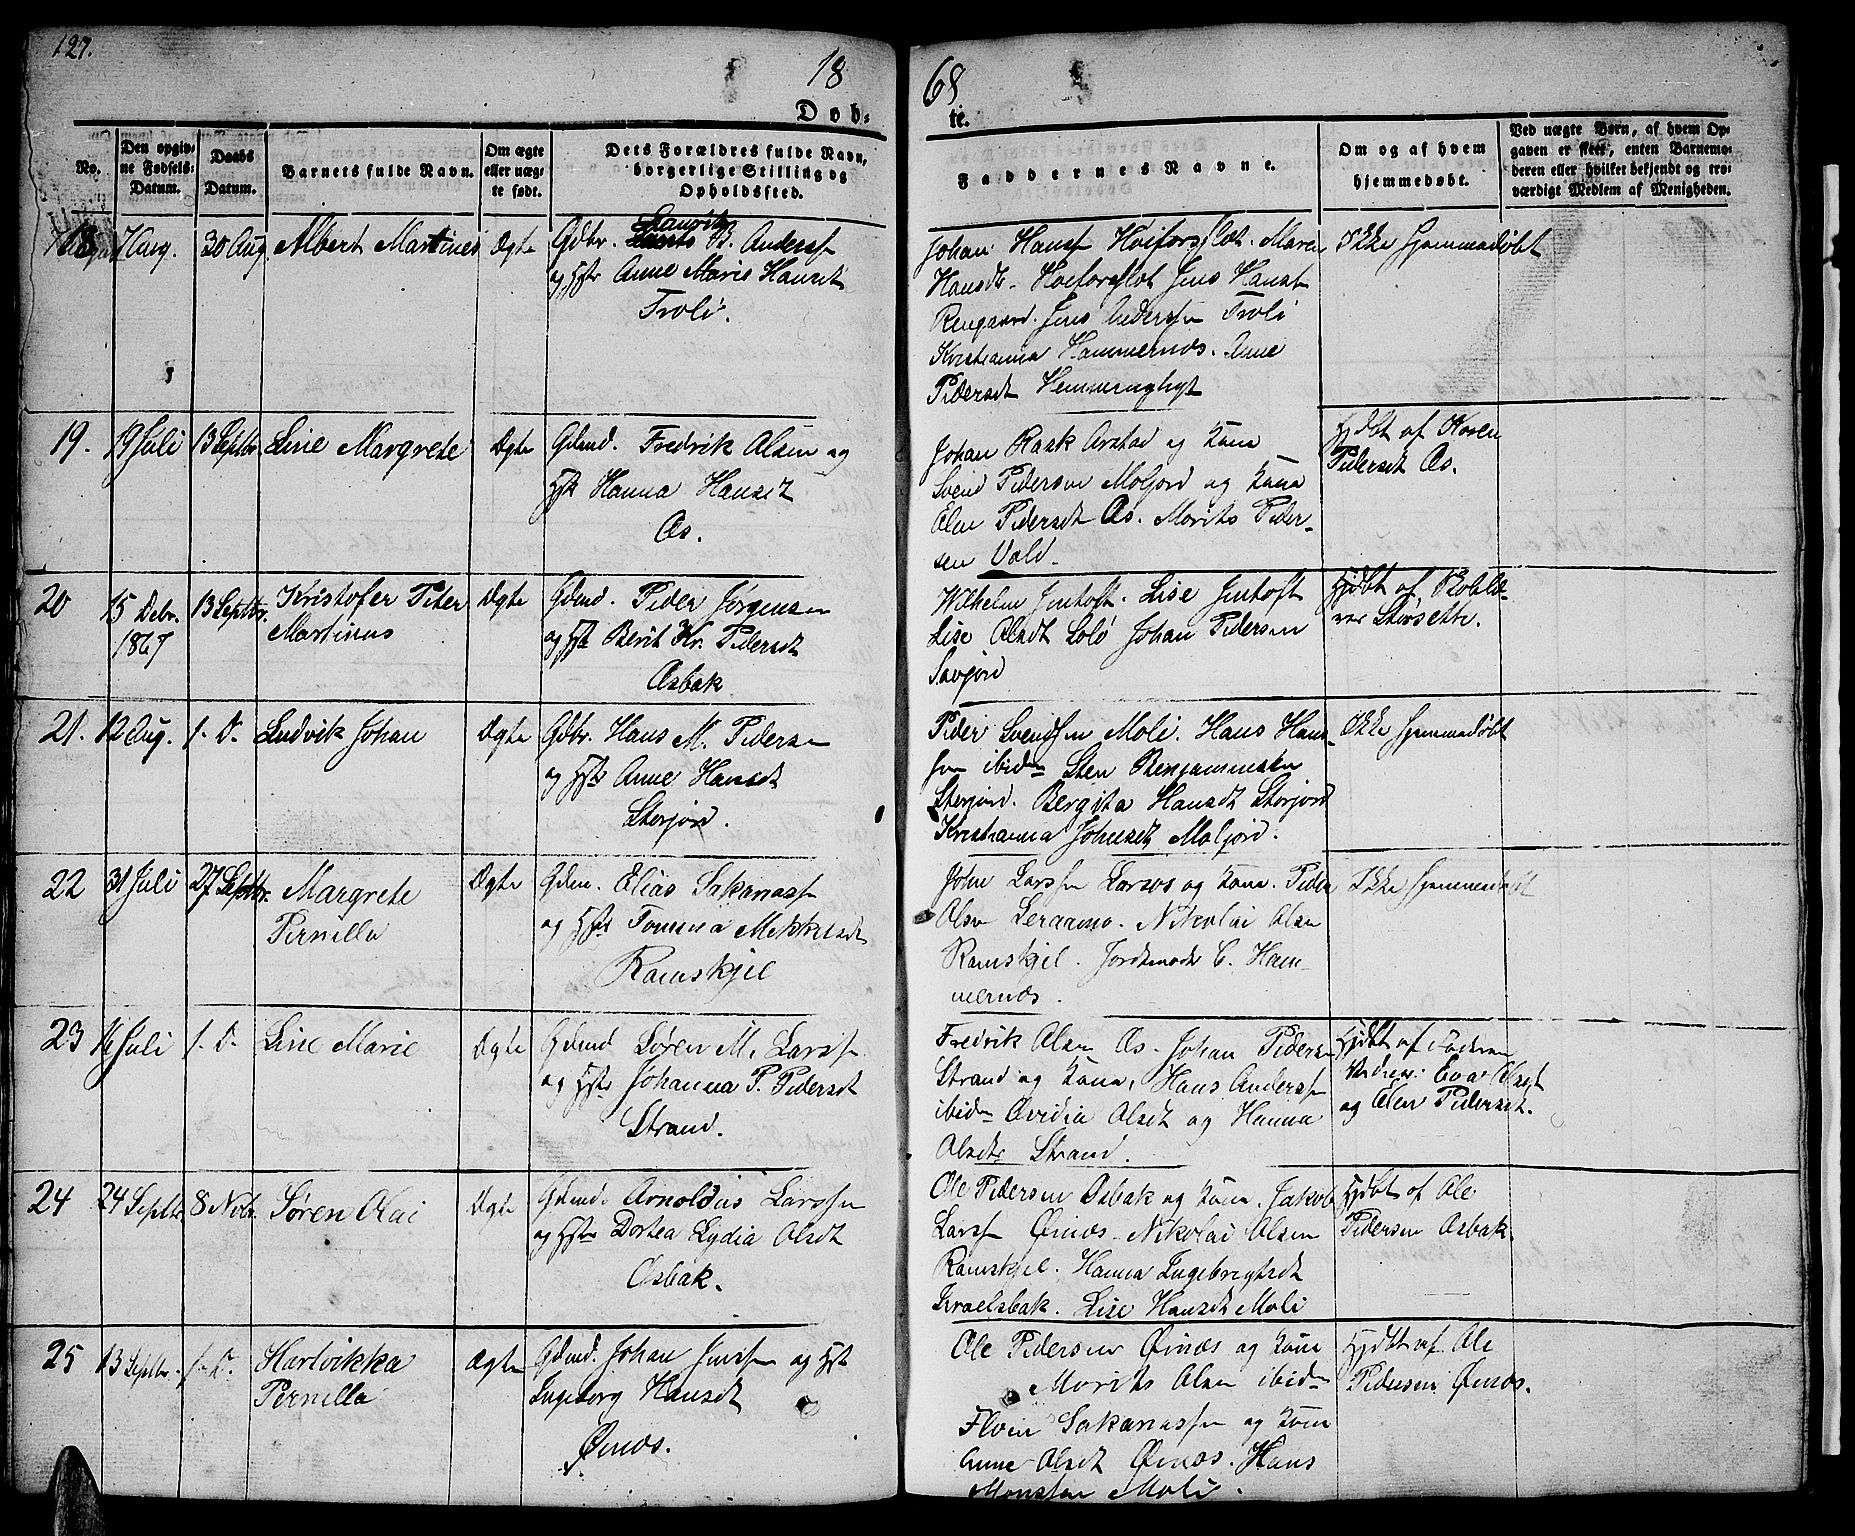 127.
18
68
Døb-
te.
No.
Den opgiv-
ne Fødsels-
Datum.
Daabs
Datum.
Barnets fulde Navn.
Om ægte
eller uæg-
te født.
Dets Forældres fulde Navn,
borgerlige Stilling og
Opholdssted.
Faddernes Navne.
Om og af hvem
hjemmedøbt.
Ved uægte Børn, af hvem Op-
gaven er skeet, enten Barnemo-
deren eller hvilket bekjendt og tro-
værdigt Medlem af Menigheden.
18
7 Aug.
30 Aug.
Albert Martines
Ægte
Gdbr. B. Anderss
og Hstr Anne Marie Hansdt
Troli.
Johan Hanss Høiforsslet. Maren
Hansdt. Høiforsslet Jens Hanss
Rengaard. Jens Anderssen Troli
Kristianna Hammernæs. Anne
Pedersdt
Ikke Hjemmedøbt
19.
19 Juli
13 Septbr.
Line Margrete
Ægte
Gdmd. Fredrik Olsen og
Hst Hanna Hansdt
Os.
Johan Rask Arstad og Kone
Svend Pedersen Moljord og Kone
Elen Pedersdt Os. Morits Peder-
sen Vold.
Hjdbt af Karen
Pedersdt Os.
20
15 Debr.
1867
13 Septbr.
Kristofer Peter
Martinus
Ægte
Gdmd. Peder Jørgensen
og Hst Berit Kr. Pedersdt
Osbak
Wilhelm Jentoft. Lise Jentoft
Lise Olsdt Johan Pedersen
Savjord
Hjdbt af
Storsette.
21.
12 Aug.
s. D.
Ludvik Johan
Ægte
Gdbr. Hans M. Pedersen
og Hstr Anne Hansdt
Storjord.
Peder Svendsen Moli. Hans Hans-
sen ibidm Sten Benjaminsen
Storjord. Bergita Hansdt Storjord
Kristianna Johnsdt Moljord.
Ikke Hjemmedøbt
22
31 Juli
27 Septbr.
Margrete
Pernilla
Ægte
Gdm. Elias Sakariass
og Hstr Tomina Mikkelsdt
Ramskjel
John Larssen Larsos og Kone. Peder
Olsen Leraamo. Nikolai Olsen
Ramskjel. Jordemoder C. Ham-
mernæs.
Ikke Hjemmedøbt
23
16 Juli
s. D.
Line Marie
Ægte
Gdmd Søren M. Larssen
og Hstr Johanna P. Pedersdt
Strand.
Fredrik Olsen Os. Johan Pedersen
Strand og Kone, Hans Anderssen
ibidm Ovidia Olsdt og Hanna
Olsdtr Strand.
Hjdbt af Faderen
Vidner: Eva Olsdt
og Elen Pedersdt.
24
24 Septbr.
8 Nobr
Søren Olai
Ægte
Gdmd. Arnoldus Larssen
og Hstr Dortea Lydia Olsdt
Osbak.
Ole Pedersen Osbak og Kone. Jakob
Larssen Øinæs. Nikolai Olsen
Ramskjel. Hanna Ingebrigtsdt
Israelsbak. Lise Hansdt Moli
Hjdbt af Ole
Pedersen Osbak.
25
13 Septbr.
s. D.
Hartvikka
Pernilla
Ægte
Gdmd. Johan Jenssen og Hst
Ingeborg Hansdt
Øinæs.
Ole Pedersen Øinæs og Kone
Morits Olsen ibidm
Sakariassen og Kone
Anne Olsdt Øinæs. Hans
Monssen Moli.
Hjdbt af Ole
Pedersen Øinæs.